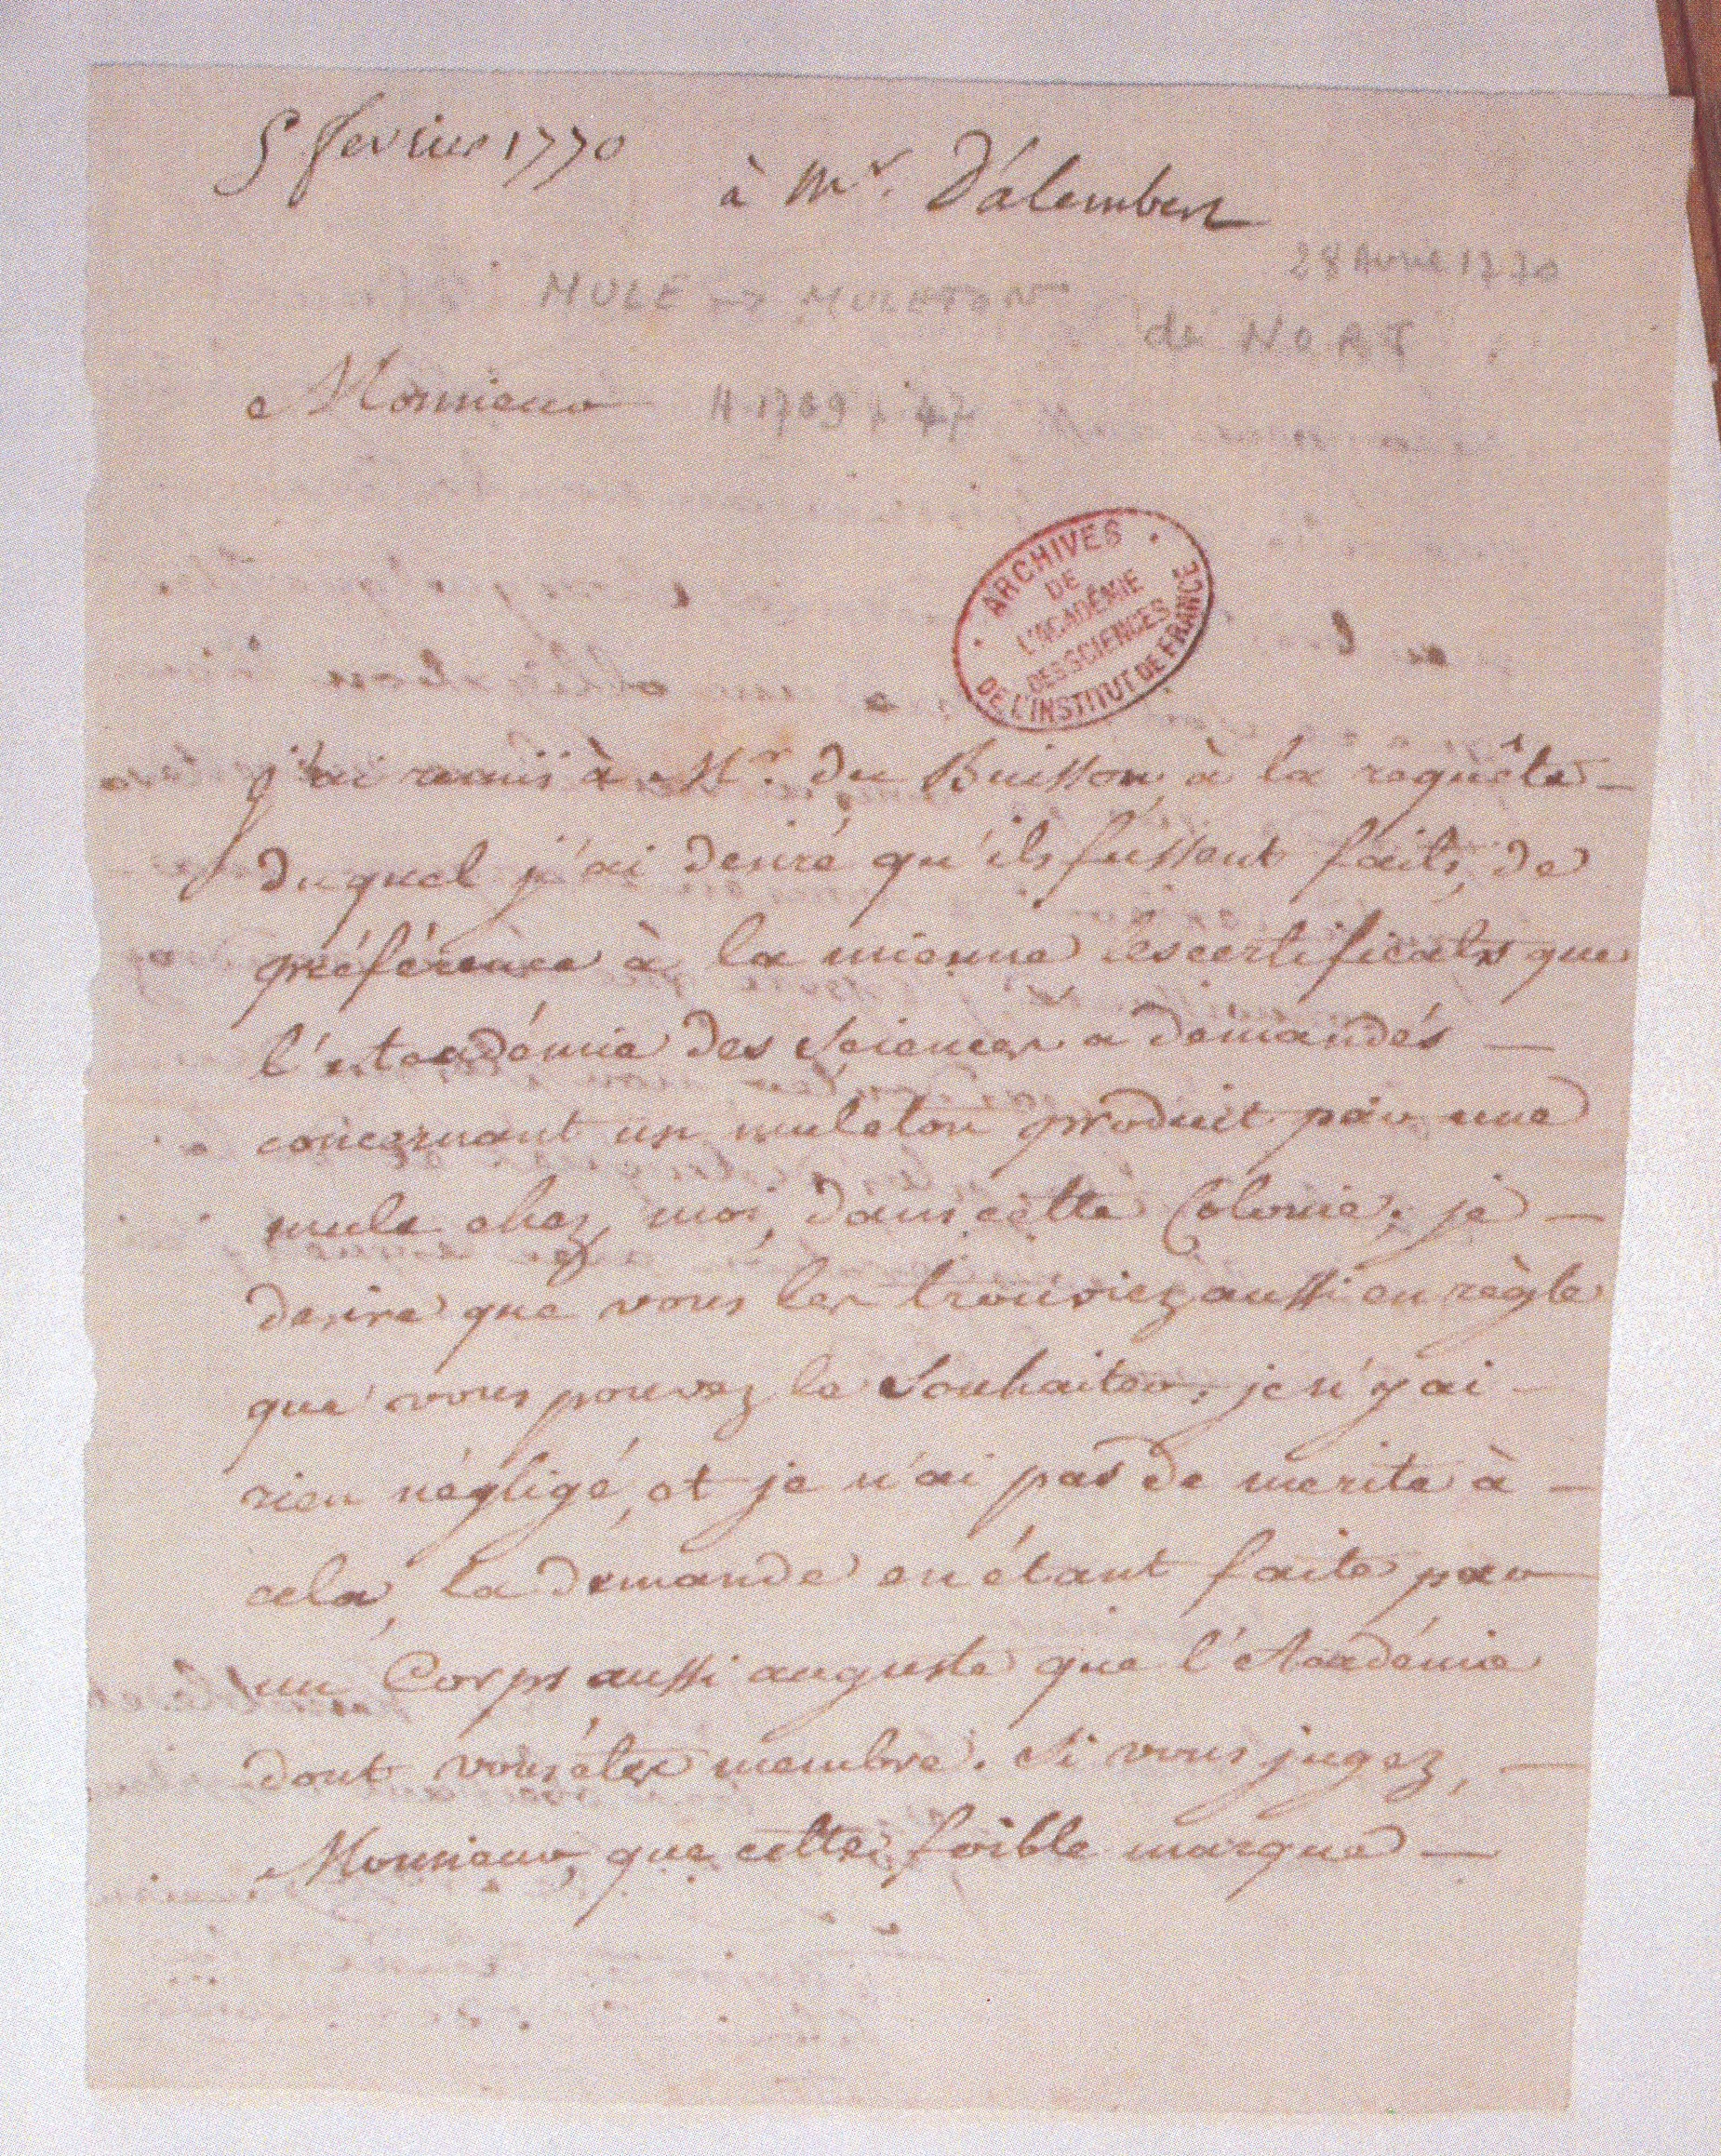 5 fevrier 1770
à Mr. D'alembert
28 Avril 1770
MULE → MULETON
de NORT
Monsieur
H. 1769 p. 47
ARCHIVES
DE
L'ACADÉMIE
DES SCIENCES
DE L'INSTITUT DE FRANCE
j'ai remis à Mr. du Buisson à la requête
duquel j'ai desiré qu'ils fussent faits, de
préférence à la mienne les certificats que
l'Académie des Sciences a demandés
concernant un muleton produit par une
mule chez moi, dans cette Colonie; je
desire que vous les trouviez aussi en règle
que vous pouvez le Souhaiter; je n'y ai
rien négligé, et je n'ai pas de merite à
cela, La demande en étant faite par
un Corps aussi auguste que l'Académie
dont vous étes membre. Si vous jugez,
Monsieur, que cette foible marque